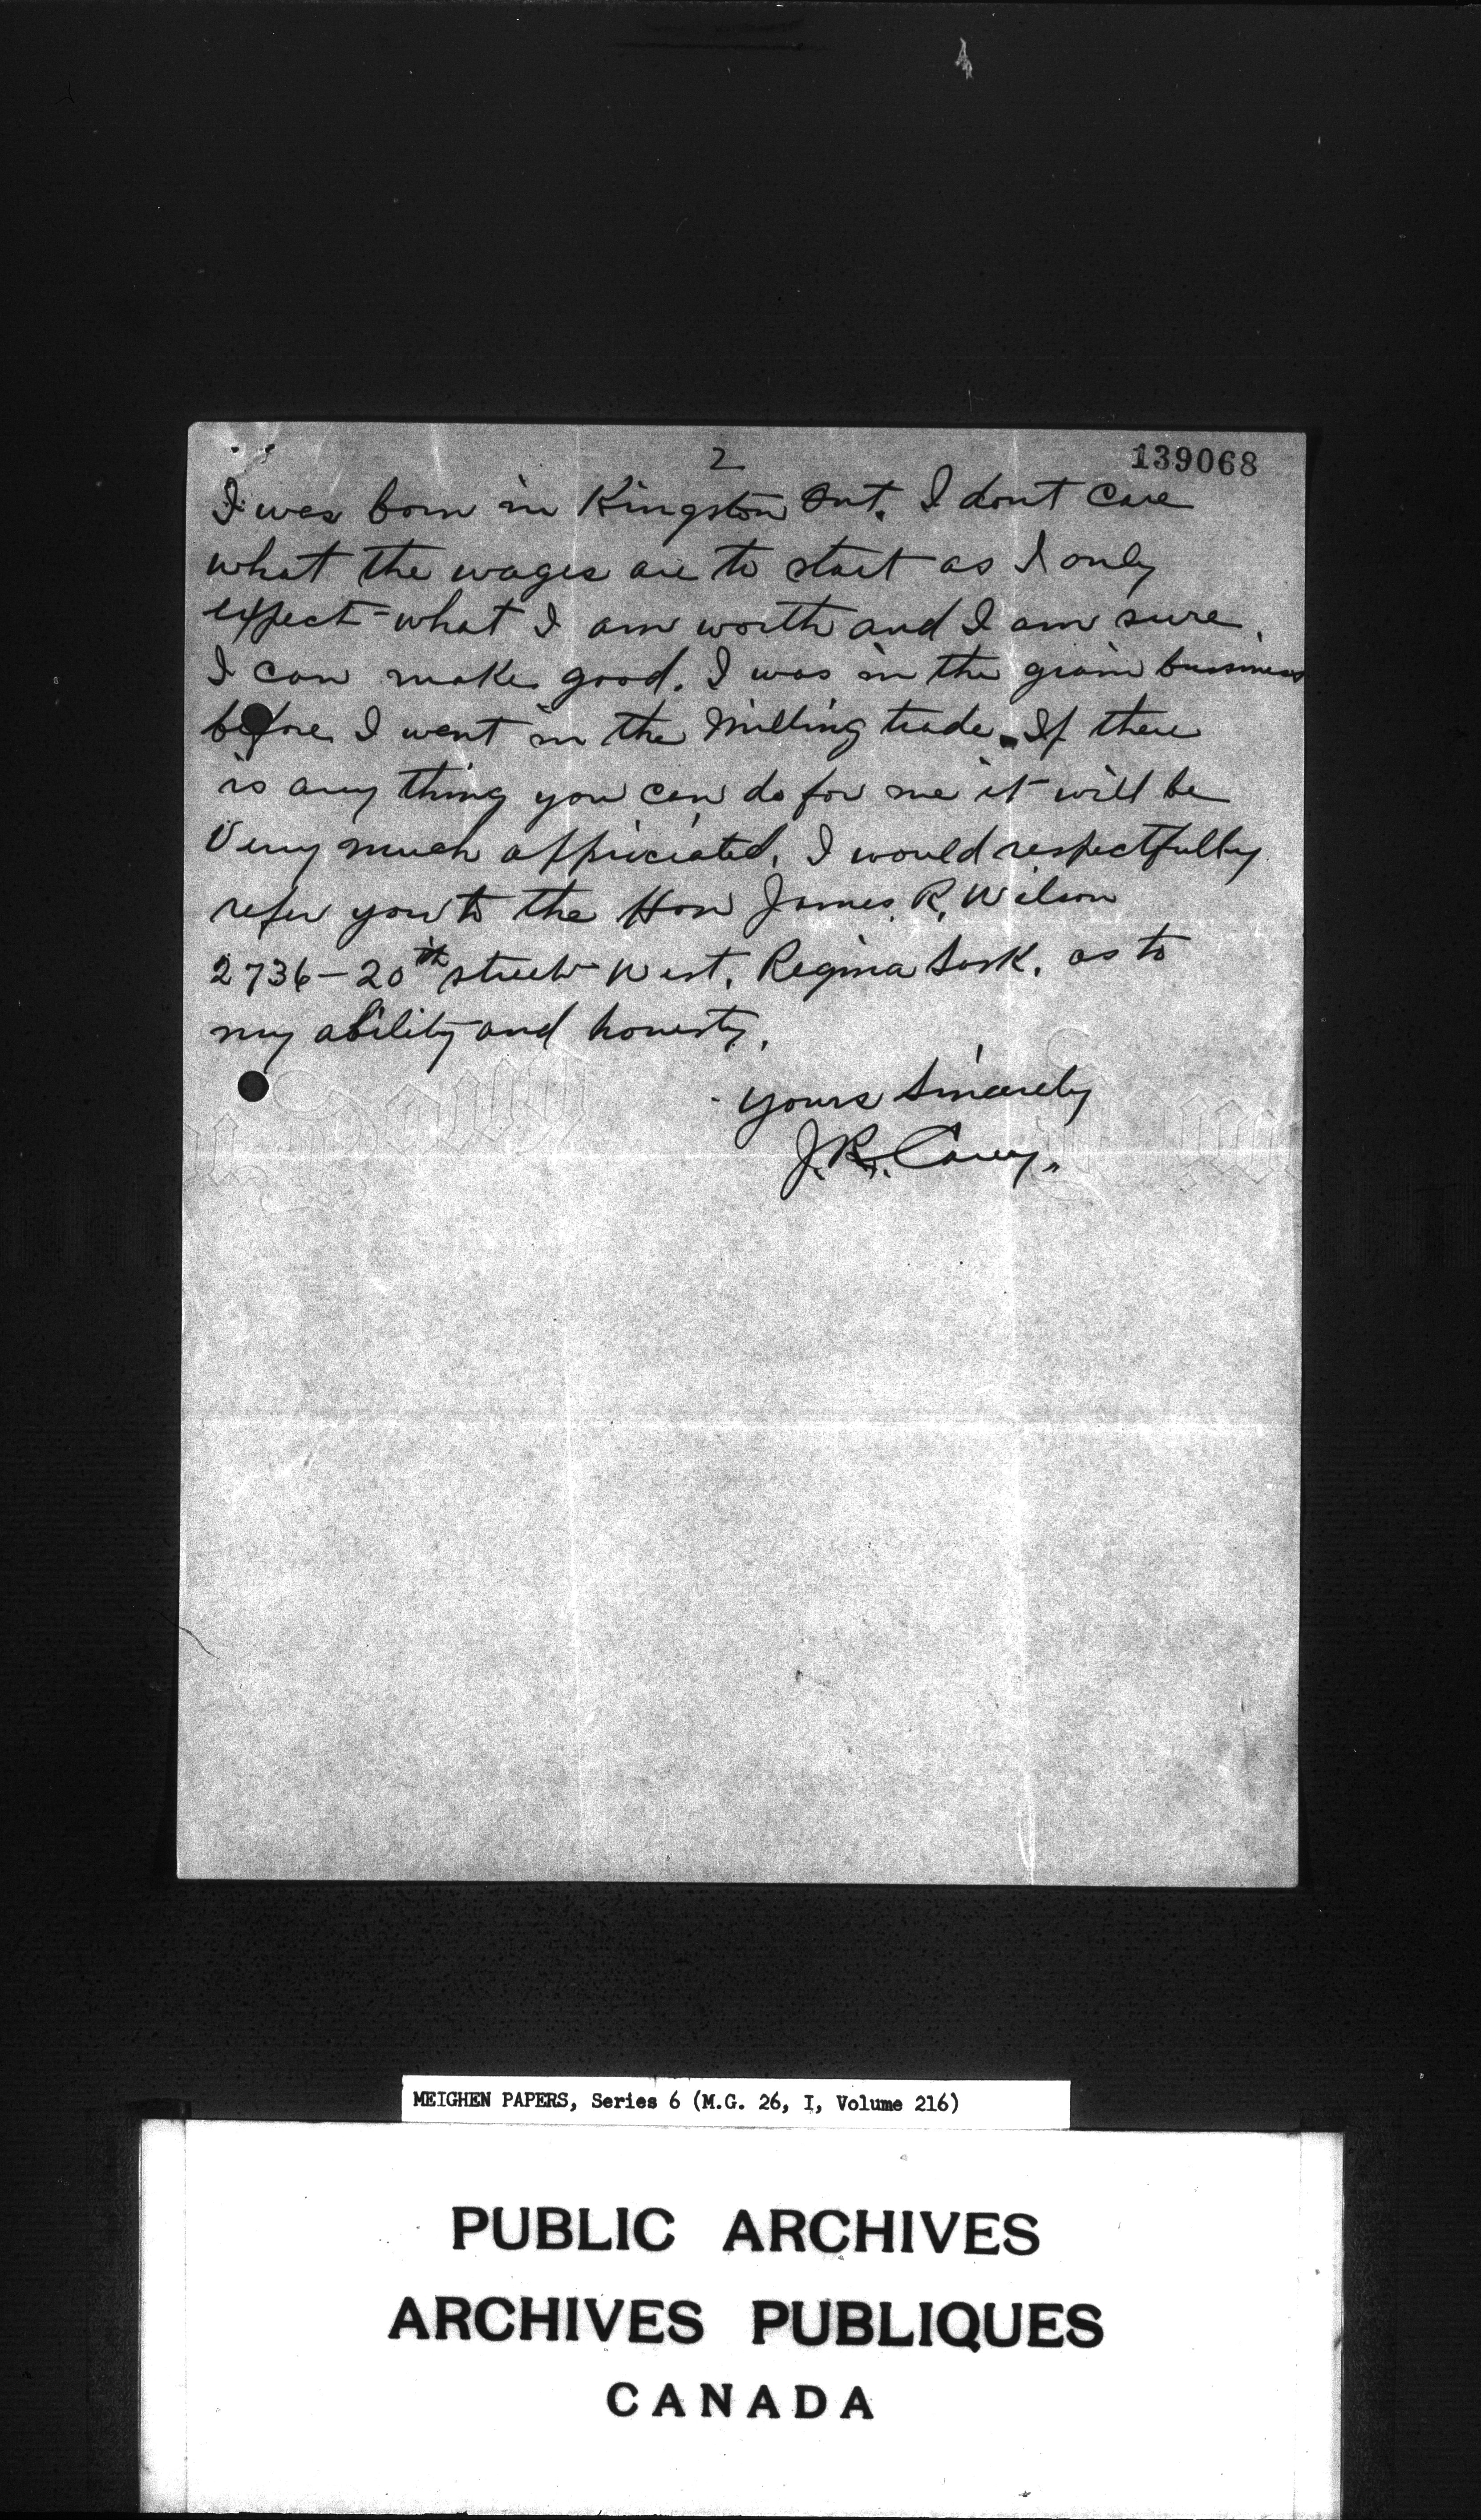 2
139068
I was born in Kingston Ont. I dont care
what the wages are to start as I only
expect what I am worth and I am sure
I can make good. I was in the grain bussiness
before I went in the Milling trade. If there
is any thing you can do for me it will be
Very much appriciated, I would respectfully
refer you to the Hon James R. Wilson
2736-20th street West, Regina Sask. as to
my ability and honesty.
Yours Sincerely
J.R. Carey.
MEIGHEN PAPERS, Series 6 (M.G. 26, I, Volume 216)
PUBLIC ARCHIVES
ARCHIVES PUBLIQUES
CANADA